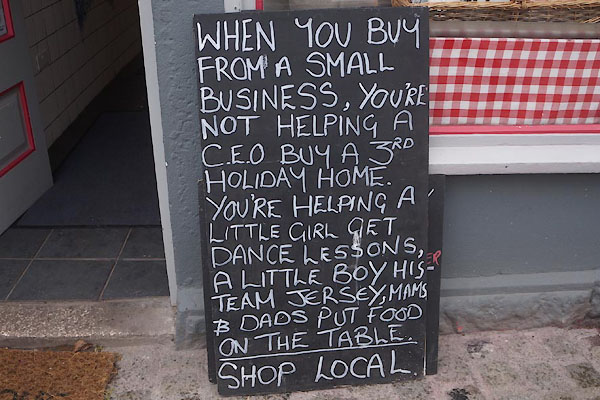 WHEN YOU BUY
FROM A SMALL
BUSINESS, YOU'RE
NOT HELPING A
C.E.O BUY A 3RD
HOLIDAY HOME.
YOU'RE HELPING A
LITTLE GIRL GET
DANCE LESSONS,
A LITTLE BOY HIS
TEAM JERSEY, MAMS
& DADS PUT FOOD
ON THE TABLE.
SHOP LOCAL.
ER